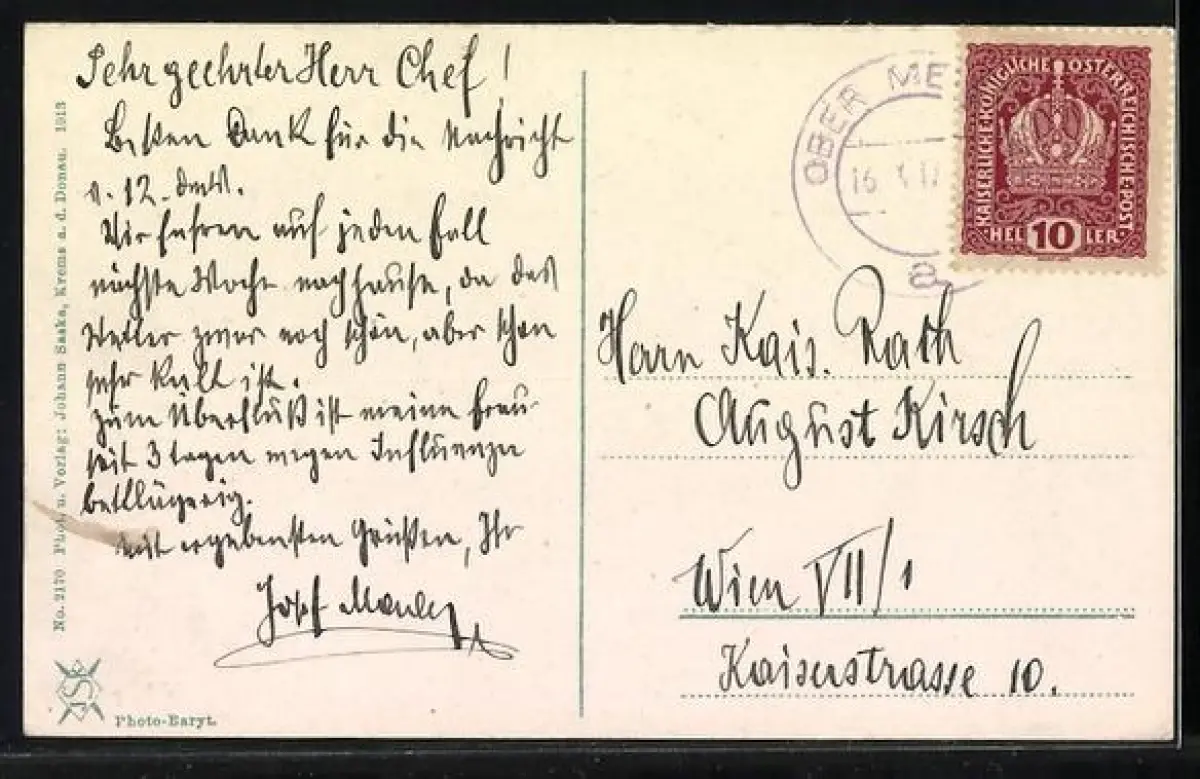 Sehr geehrter Herr Chef!
Besten Dank für die Nachricht
v. 12. dMts.
Wir fahren auf jeden Fall
nächste Woche nachhause, da das
Wetter zwar noch schön, aber schon
sehr kalt ist.
Zum Überfluß ist meine Frau
seit 3 Tagen wegen Influenza
bettlägerig.
Mit ergebensten Grüßen, Ihr
Josef
No. 2170 Phot. u. Verlag: Johann Saska, Krems a. d. Donau. 1913
JSK
Photo-Baryt.
OBER ME
16 X 17
a
KAISERLICHE KÖNIGLICHE ÖSTERREICHISCHE POST
HEL 10 LER
Herrn Kais. Rath
August Kirsch
Wien VII/1
Kaiserstrasse 10.